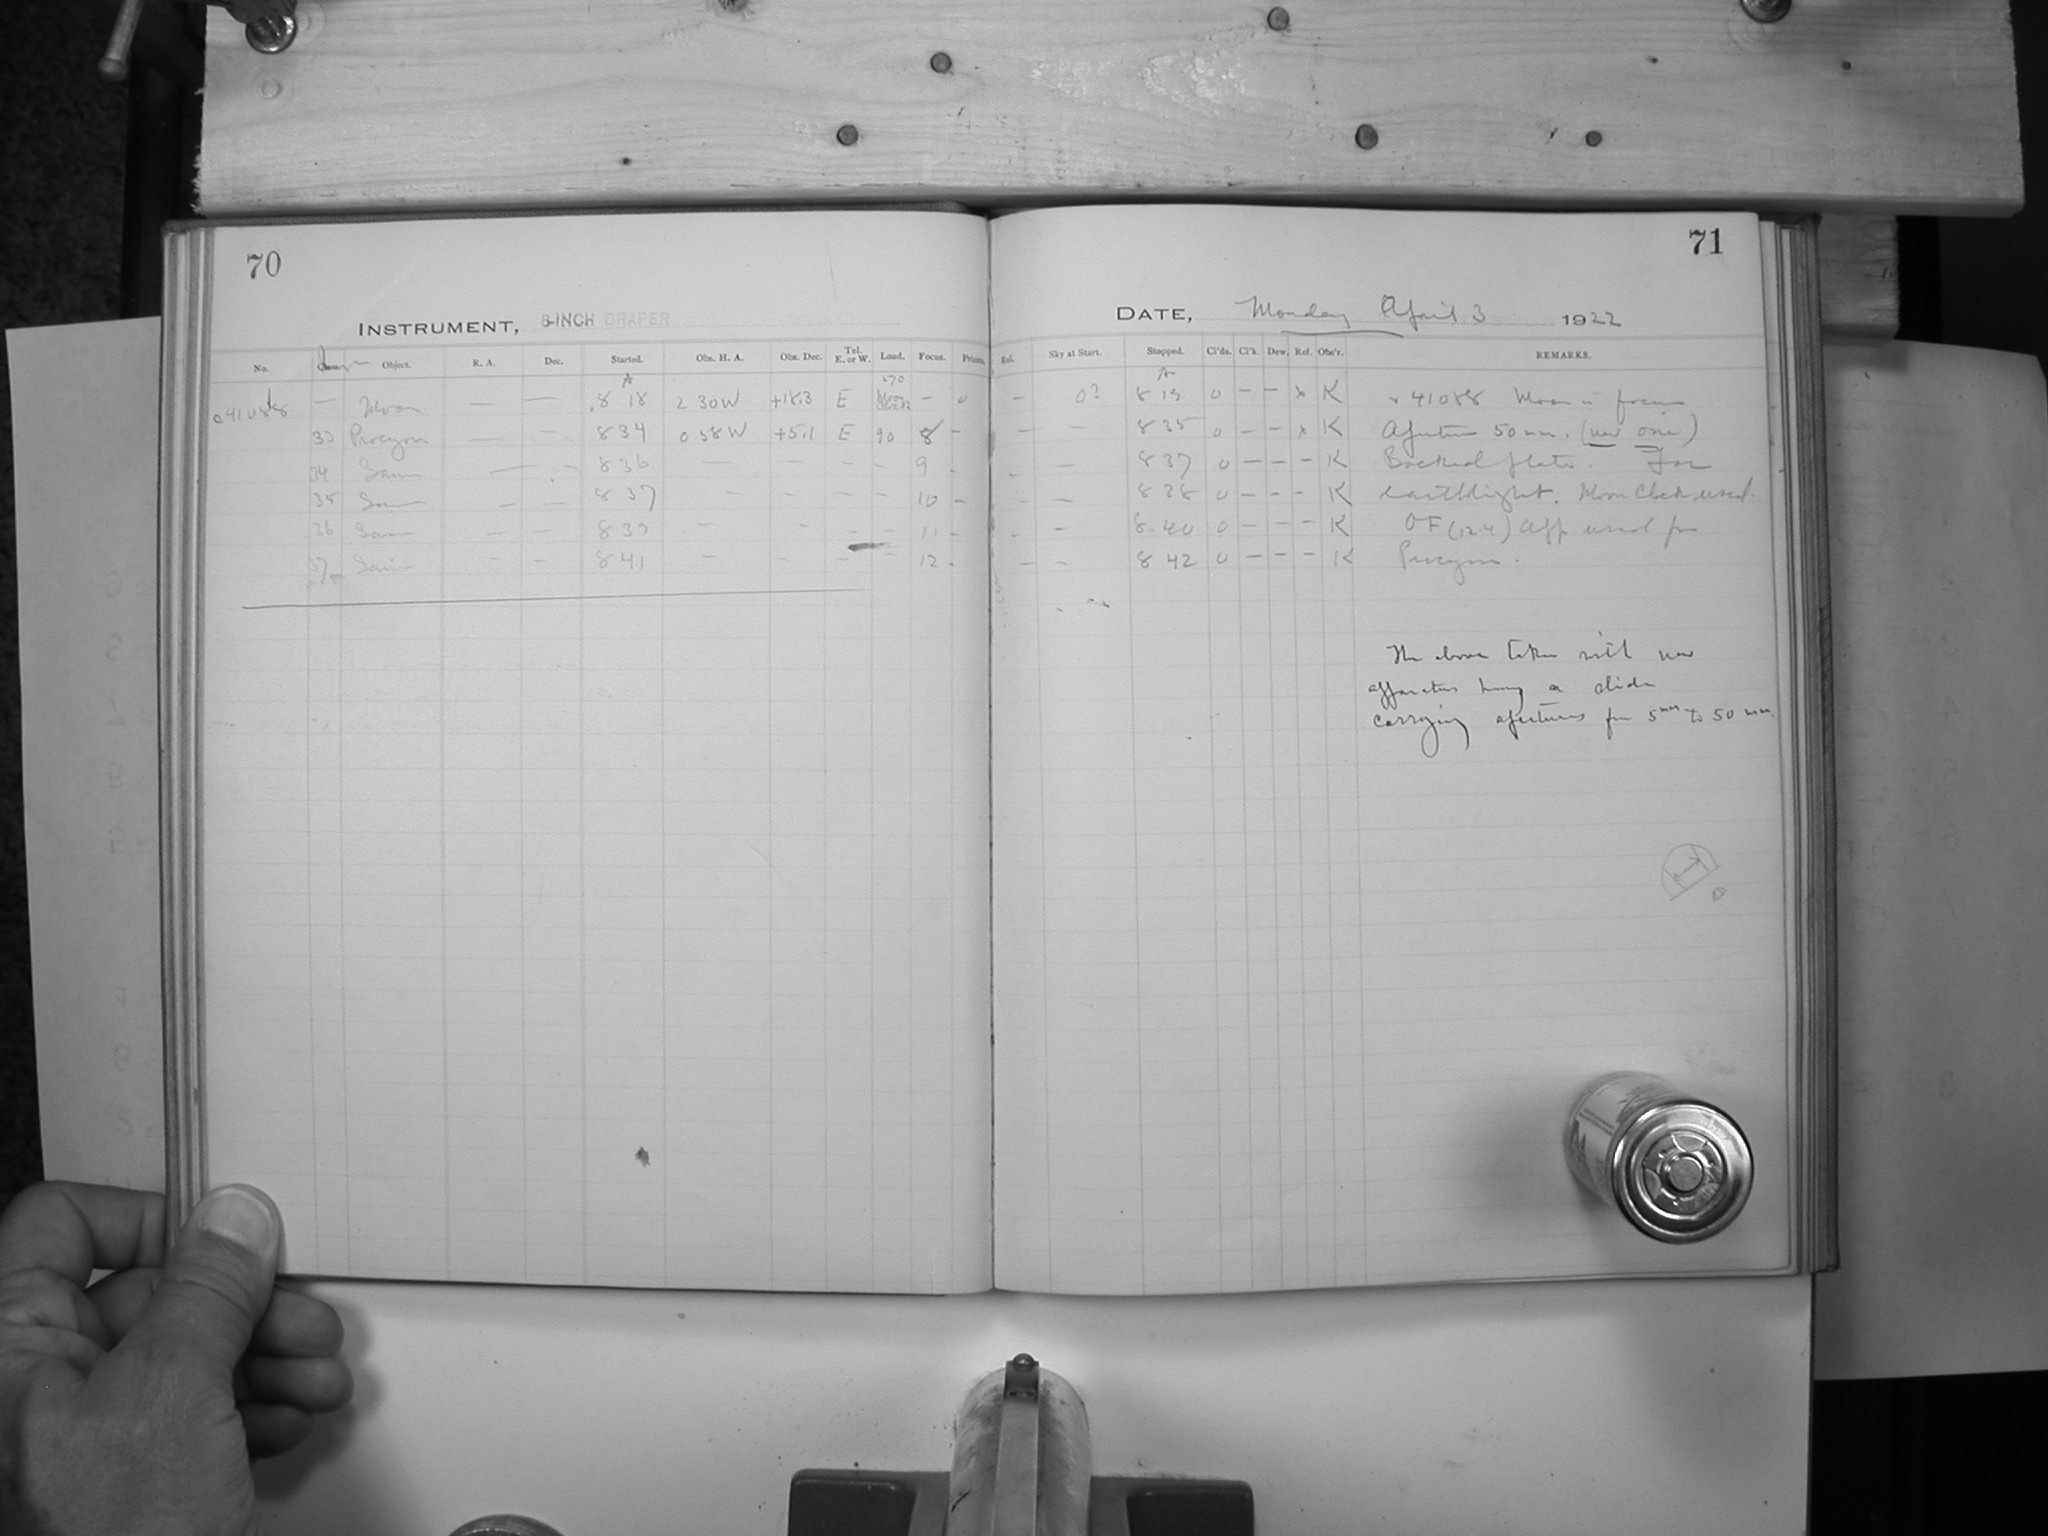 70
INSTRUMENT, 8-INCH DRAPER
No. Object. R. A. Dec. Started. Obs. H. A. Obs. Dec. Tel. E. or W. Load. Focus. Prism.
A 570
c41088 — Moon — — 8 18 2 30W +18.3 E Moon Clock — 0
33 Procyon — — 8 34 0 58W +5.1 E 90 8 –
34 Same — — 8 36 — — – – 9 -
35 Same — — 8 37 – – – – 10 –
36 Same — – 8 39 – – – – 11 -
37 Same – – 8 41 – – – – 12 -
71
DATE, Monday April 3 1922
Sky at Start. Stopped. Cl'ds. Cl'k. Dew. Ref. Obs'r. REMARKS.
A
– 0? 8 19 0 – – x K 41088 Moon in focus
— — 8 35 0 – – x K Aperture 50 mm. (new one)
– — 8 37 0 – – – K Backed plate. For
– — 8 38 0 – – - K earthlight. Moon Clock used.
– 8 40 0 – – – K OF (12.4) app used for
– – 8 42 0 – – – K Procyon.
The above taken with new
apparatus having a slide
carrying apertures from 5mm to 50 mm.